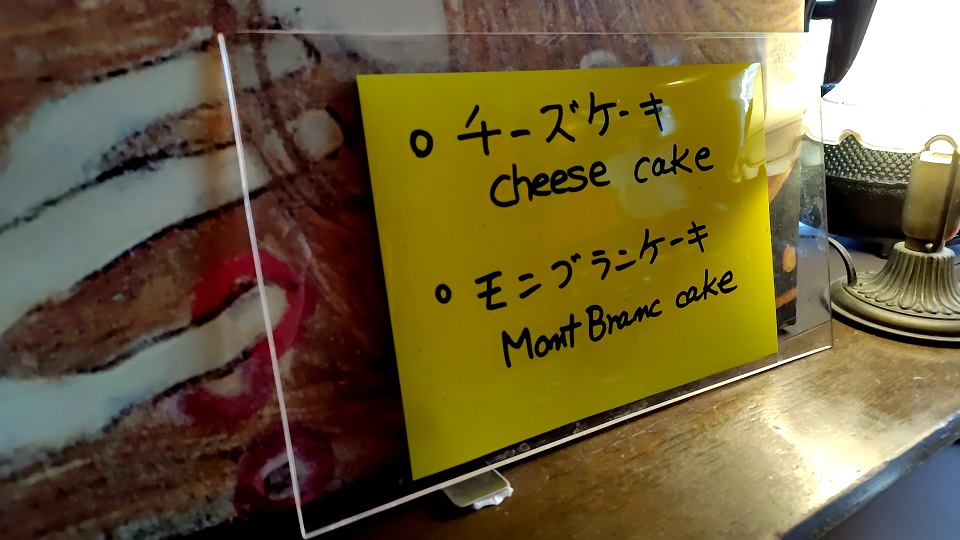 ○ チーズケーキ
cheese cake
○ モニブラニケーキ
Mont Branc cake